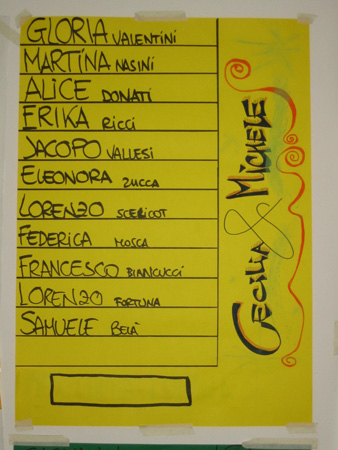 GLORIA VALENTINI
MARTINA NASINI
ALICE DONATI
ERIKA RICCI
JACOPO VALLESI
ELEONORA ZUCCA
LORENZO SCERICOT
FEDERICA MOSCA
FRANCESCO BIANCUCCI
LORENZO FORTUNA
SAMUELE BELÀ
CECILIA & MICHELE